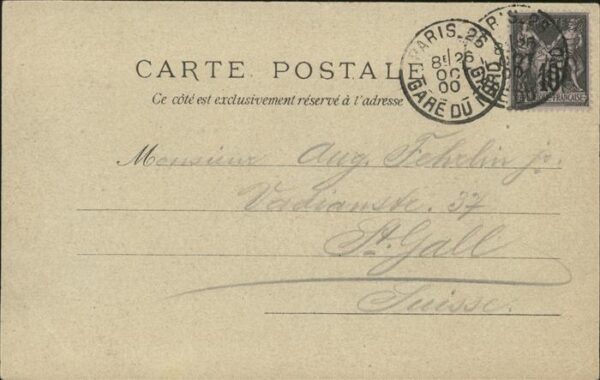 PARIS-26
8E 26
OC
00
GARE DU NORD
10
CARTE POSTALE
Ce côté est exclusivement réservé à l'adresse
Monsieur Aug. Fehrlin jr.
Vadianstr. 37
St. Gall
Suisse.